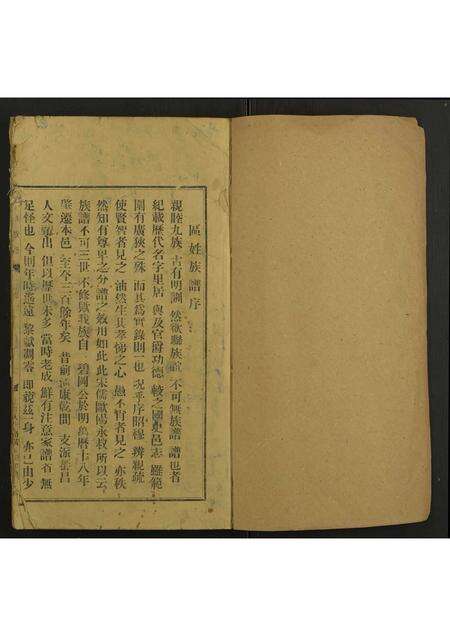 區姓族譜序
親睦九族 古有明訓 然欲聯族誼 不可無族譜 譜也者
紀載歷代名字里居 與及官爵功德 較之國史邑志 雖範
圍有廣狹之殊 而其爲實錄則一也 况乎序昭穆 辨親疏
使賢智者見之 油然生其孝悌之心 愚不肖者見之 亦秩
然知有尊卑之分 譜之效用如此 此宋儒歐陽永叔所以云
族譜不可三世不修歟 我族自 碧岡公於明萬曆十八年
遷本邑 至今三百餘年矣 昔嗣 康乾間 支派 昌
人文 出 但以歷世未多 當時老成 鮮有注意家譜者 無
足怪也 今則年時遙遠 黎獻凋零 卽就茲一身 亦已由少